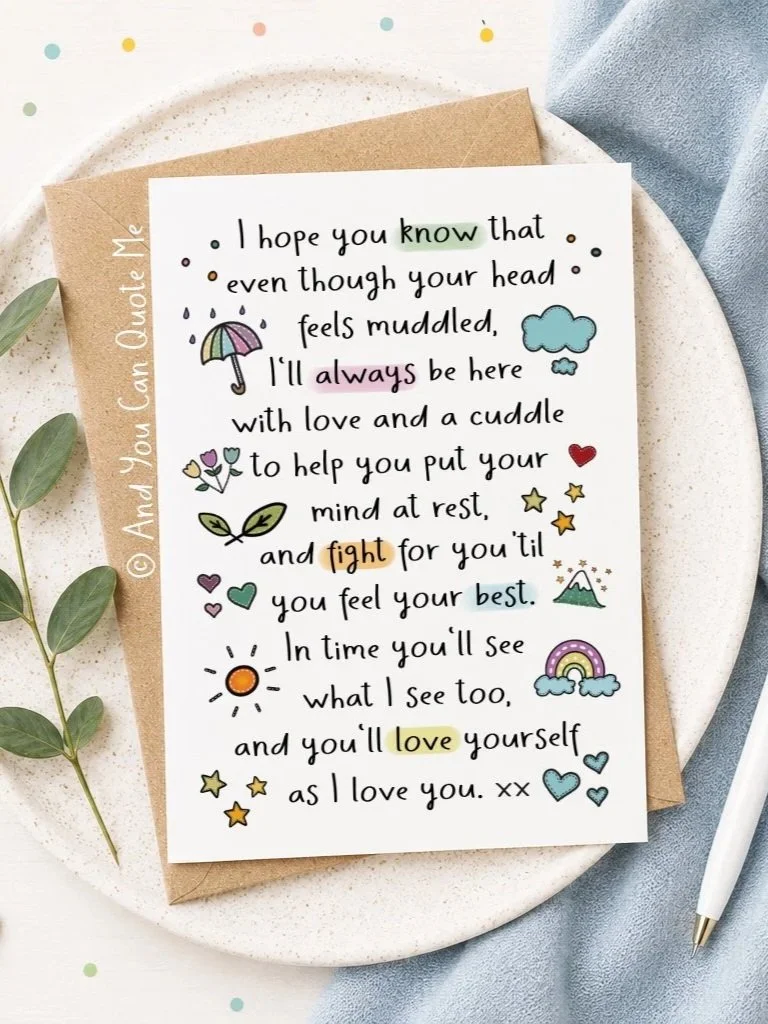 I hope you know that
even though your head
feels muddled,
I'll always be here
with love and a cuddle
to help you put your
mind at rest,
and fight for you 'til
you feel your best.
In time you'll see
what I see too,
and you'll love yourself
as I love you. xx
© And You Can Quote Me